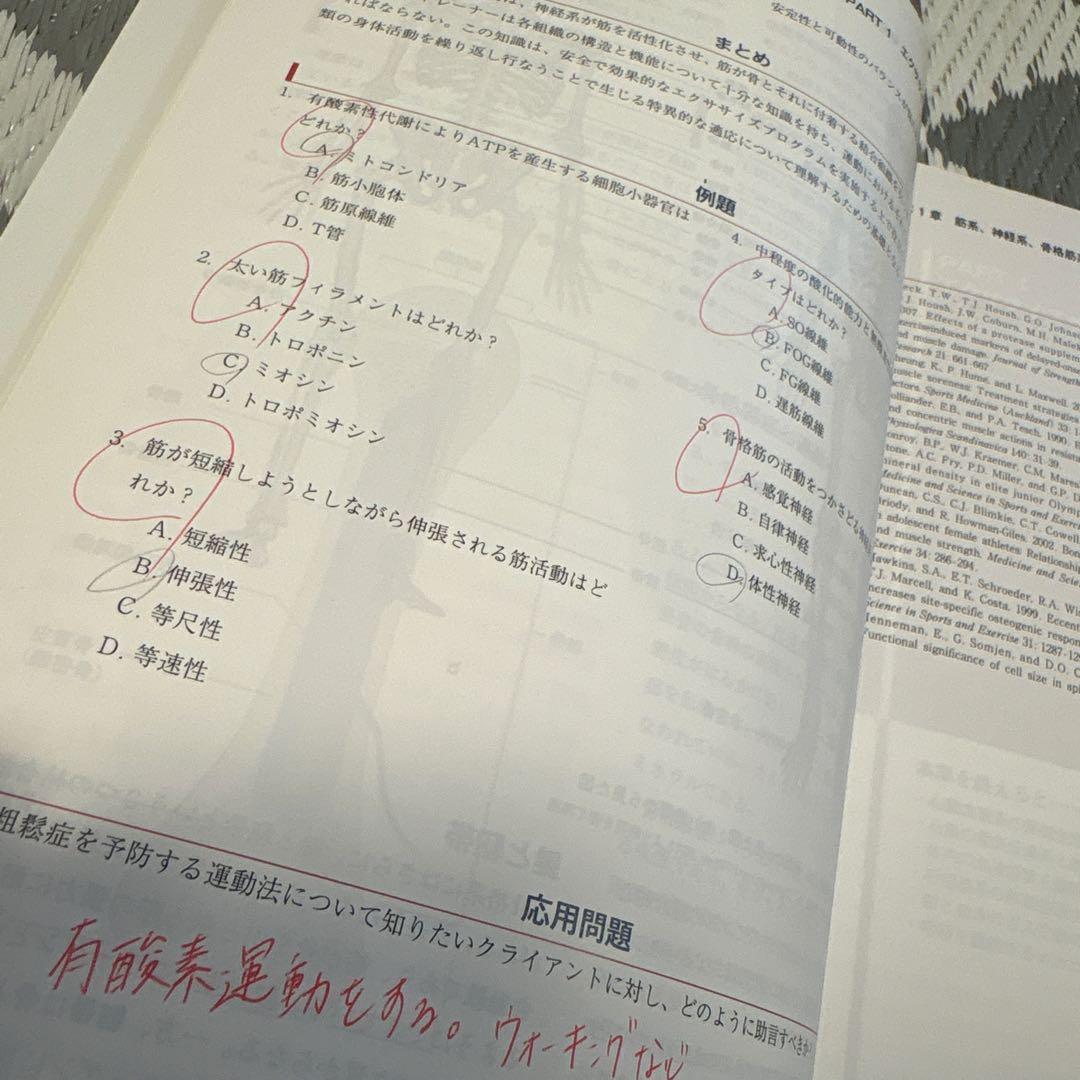 PART 1
安定性と可動性のバランスが
まとめ
は、神経系が筋を活性化させ、筋が骨とそれに付着する結合組織を
レーナーは各組織の構造と機能について十分な知識を持ち、運動における
ればならない。この知識は、安全で効果的なエクササイズプログラムを実施する上で
類の身体活動を繰り返し行なうことで生じる特異的な適応について理解するための基礎
例題
1. 有酸素性代謝によりATPを産生する細胞小器官は
どれか?
A. ミトコンドリア
B. 筋小胞体
C. 筋原線維
D. T管
2. 太い筋フィラメントはどれか?
A. アクチン
B. トロポニン
C. ミオシン
D. トロポミオシン
3. 筋が短縮しようとしながら伸張される筋活動はど
れか?
A. 短縮性
B. 伸張性
C. 等尺性
D. 等速性
4. 中程度の酸化的能力と
タイプはどれか?
A. SO線維
B. FOG線維
C. FG線維
D. 遅筋線維
5. 骨格筋の活動をつかさどる
A. 感覚神経
B. 自律神経
C. 求心性神経
D. 体性神経
応用問題
粗鬆症を予防する運動法について知りたいクライアントに対し、どのように助言すべきか
有酸素運動をする。ウォーキングなど
1章 筋系、神経系、骨格筋
eck, T.W., T.J. Housh, G.O. Johns
J. Housh, J.W. Coburn, M.H. Malek
007. Effects of a protease supplem
exerciseinduced markers of delayed-onse
nd muscle damage. Journal of Strength
Research 21: 661-667.
heung, K., P. Hume, and L. Maxwell. 2
uscle soreness: Treatment strategies
ctors. Sports Medicine (Auckland) 33: 1
olliander, E.B., and P.A. Tesch. 1990.
nd concentric muscle actions in resista
Physiologica Scandinavica 140: 31-39.
onroy, B.P., W.J. Kraemer, C.M. Mares
tone, A.C. Fry, P.D. Miller, and G.P. D
mineral density in elite junior Olymp
Medicine and Science in Sports and Exercise
Duncan, C.S., C.J. Blimkie, C.T. Cowell
Briody, and R. Howman-Giles. 2002. Bon
n adolescent female athletes: Relationship
nd muscle strength. Medicine and Scien
Exercise 34: 286-294.
Hawkins, S.A., E.T. Schroeder, R.A. Wis
J. Marcell, and K. Costa. 1999. Eccent
increases site-specific osteogenic respon
Science in Sports and Exercise 31: 1287-129
Henneman, E., G. Somjen, and D.O. C
Functional significance of cell size in sp